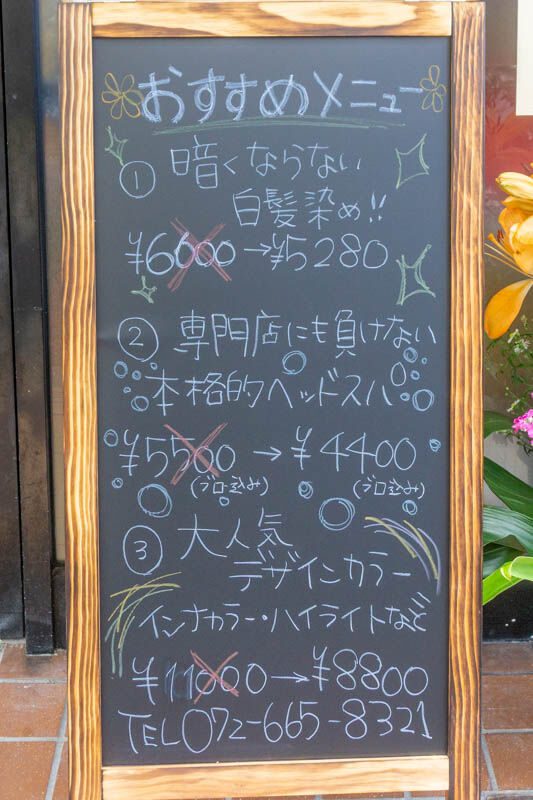 おすすめメニュー
① 暗くならない
白髪染め!!
¥6000→¥5280
② 専門店にも負けない
本格的ヘッドスパ
¥5500 → ¥4400
(ブロー込み) (ブロー込み)
③ 大人気
デザインカラー
インナカラー・ハイライトなど
¥11000→¥8800
TEL072-665-8321